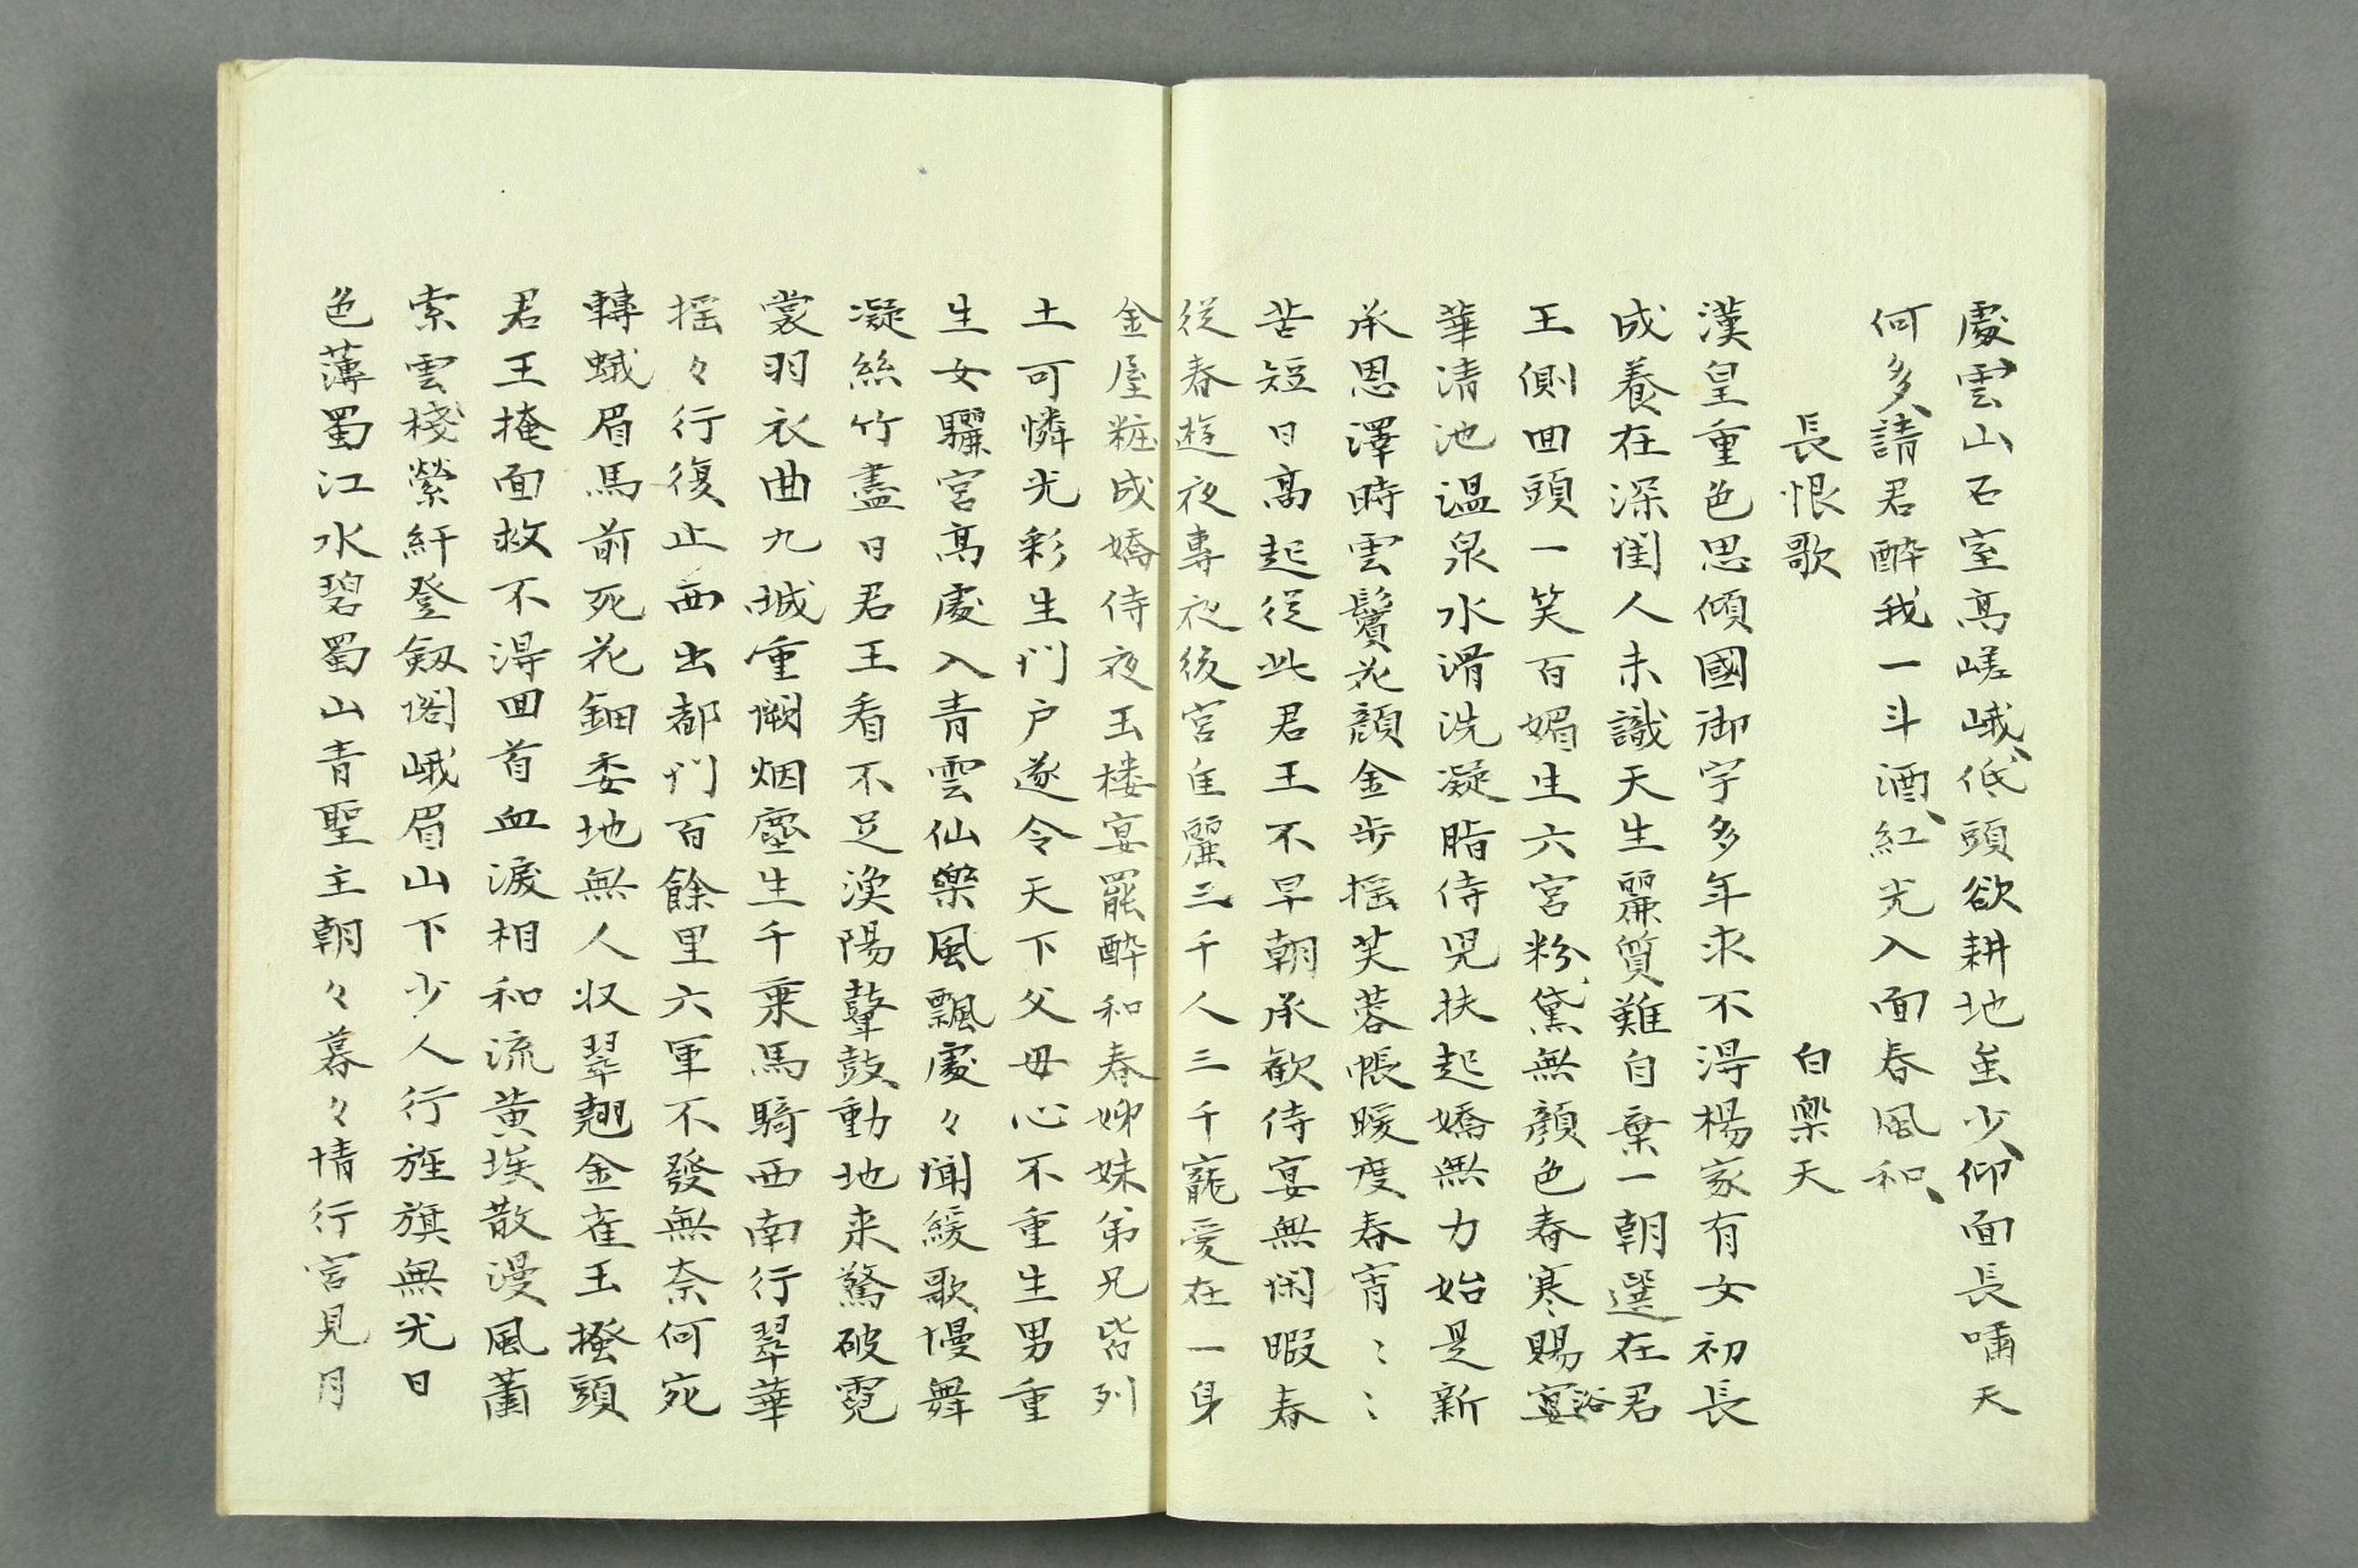 處雲山石室高嵯峨、低頭欲耕地虽少、仰面長嘯天
何多、請君醉我一斗酒、紅光入面春風和、
長恨歌　白樂天
漢皇重色思傾國御宇多年求不得楊家有女初長
成養在深閨人未識天生麗質難自棄一朝選在君
王側回頭一笑百媚生六宮粉黛無顔色春寒賜宴浴
華清池温泉水滑洗凝脂侍児扶起嬌無力始是新
承恩澤時雲鬢花顔金歩揺芙蓉帳暖度春宵〻〻
苦短日高起従此君王不早朝承歓侍宴無閑暇春
従春遊夜専夜後宮佳麗三千人三千寵愛在一身
金屋粧成嬌侍夜玉楼宴罷醉和春姉妹弟兄皆列
土可憐光彩生門户遂令天下父母心不重生男重
生女驪宮高處入青雲仙樂風飄處々聞緩歌慢舞
凝絲竹盡日君王看不足漁陽鼙鼓動地来驚破霓
裳羽衣曲九城重闕烟塵生千乗馬騎西南行翠華
揺々行復止西出都門百餘里六軍不發無奈何宛
轉蛾眉馬前死花鈿委地無人収翠翹金雀玉掻頭
君王掩面救不得回首血淚相和流黄埃散漫風蕭
索雲棧縈紆登劔閣峨眉山下少人行旌旗無光日
色薄蜀江水碧蜀山青聖主朝々暮々情行宮見月